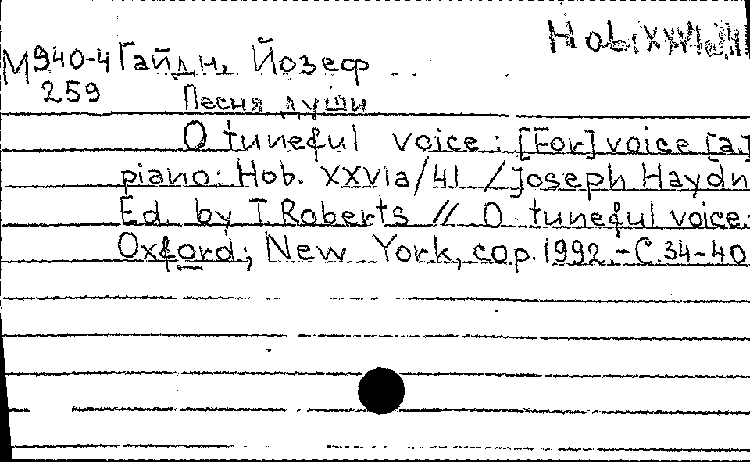 Hob. XXVIa/41
М940-4 Гайдн, Йозеф
259 Песня души
O tuneful voice: [For] voice [a.]
piano: Hob. XXVIa/41 / Joseph Haydn
Ed. by T. Roberts // O tuneful voice.
Oxford; New York, cop. 1992.-C.34-40